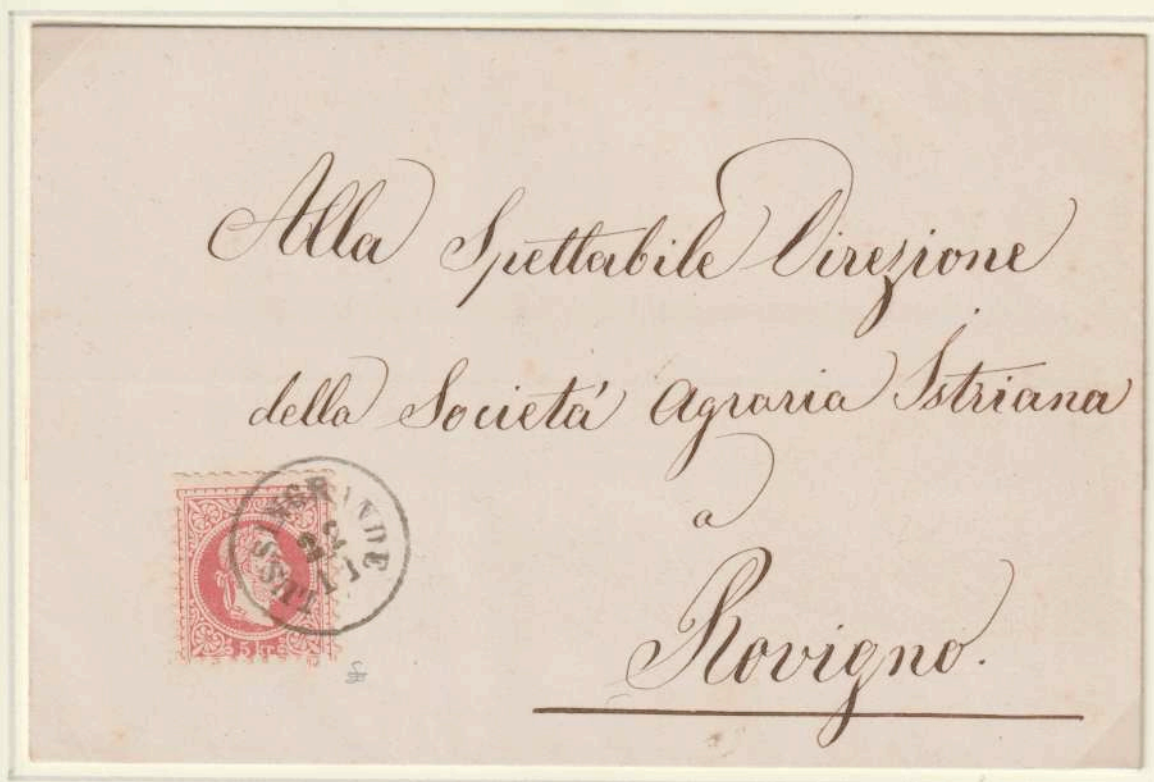 Alla Spettabile Direzione
della Società Agraria Istriana
a
Rovigno.
LUSSINGRANDE
5 kr